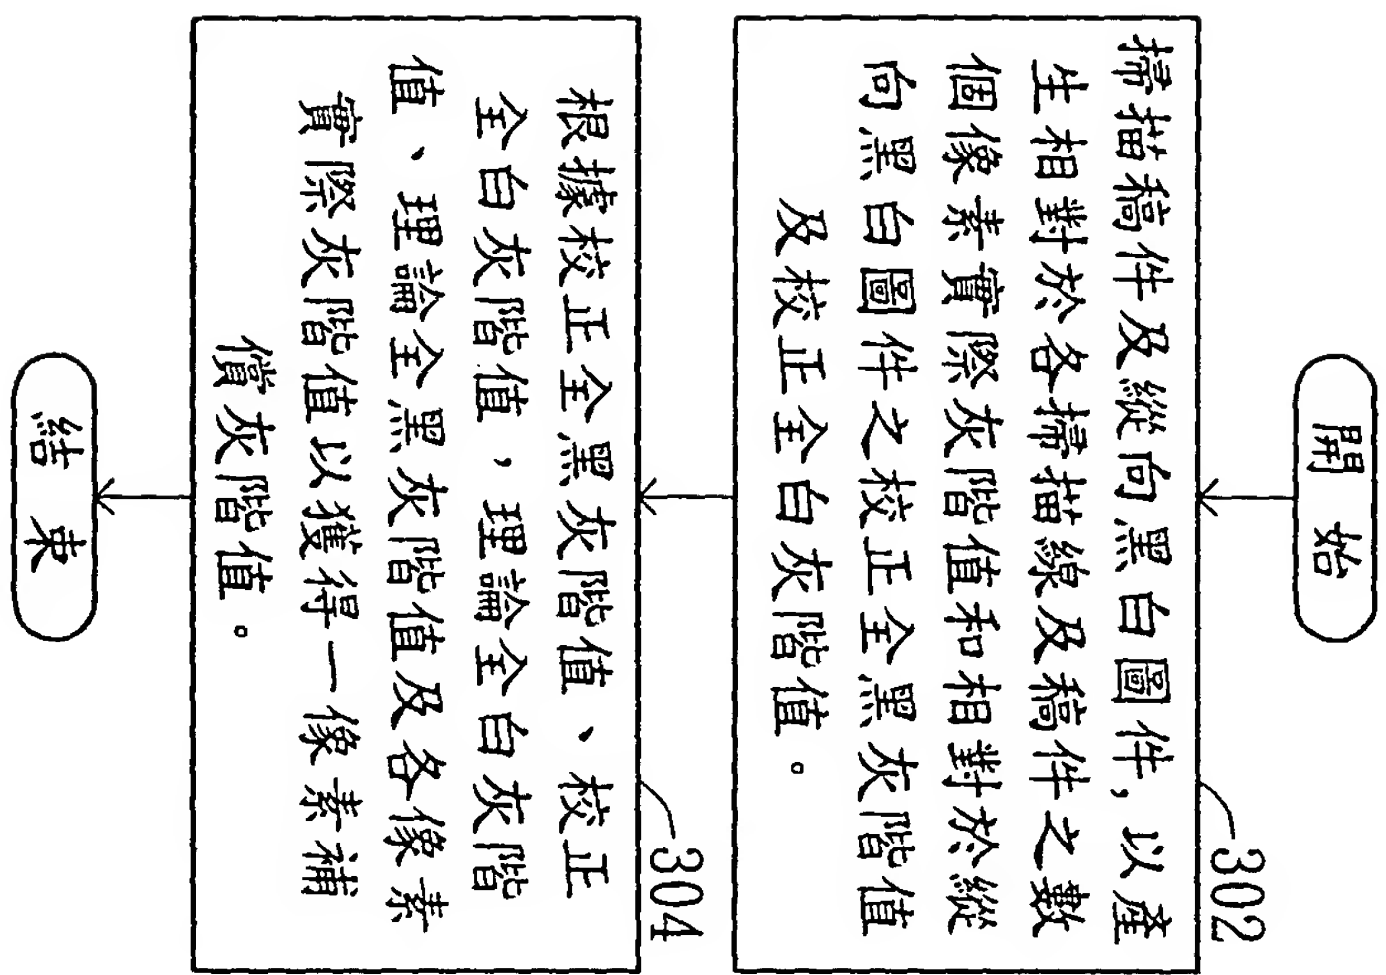 開始
302
掃描稿件及縱向黑白圖件,以產
生相對於各掃描線及稿件之數
個像素實際灰階值和相對於縱
向黑白圖件之校正全黑灰階值
及校正全白灰階值。
304
根據校正全黑灰階值、校正
全白灰階值,理論全白灰階
值、理論全黑灰階值及各像素
實際灰階值以獲得一像素補
償灰階值。
結束